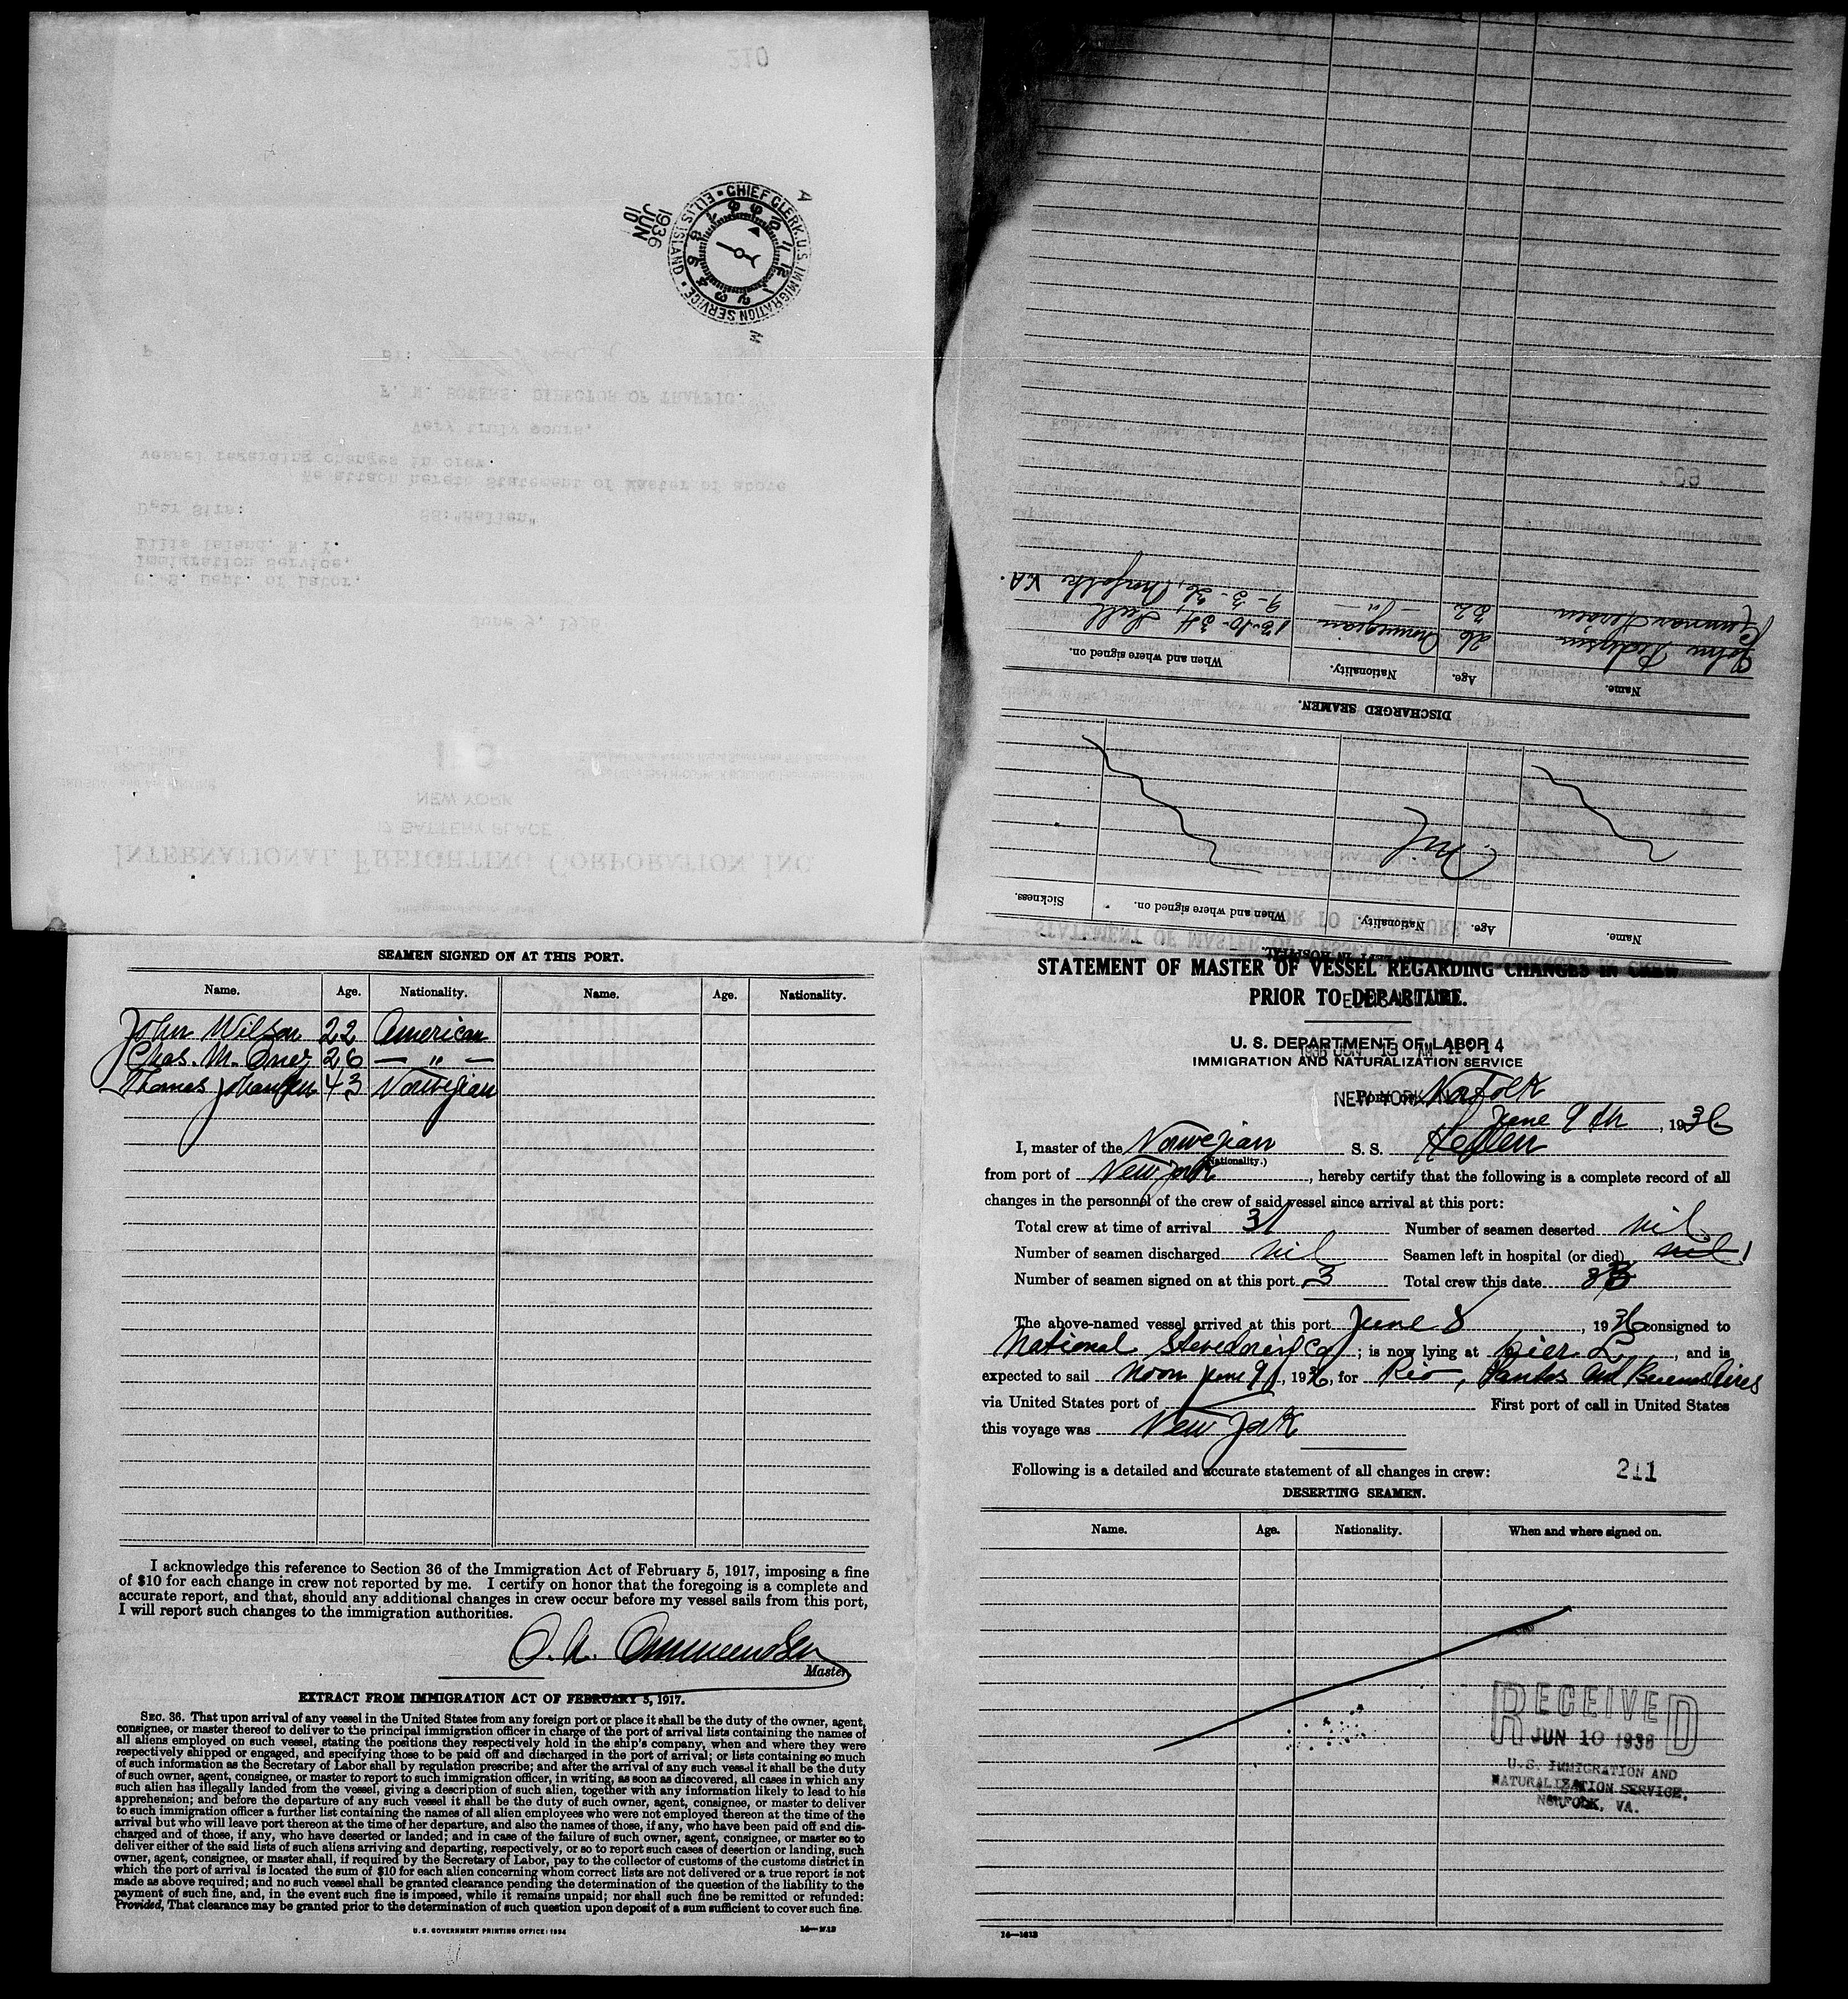 210
CHIEF CLERK, U.S. IMMIGRATION SERVICE • ELLIS ISLAND •
1936
JUN
10
A
M
INTERNATIONAL FREIGHTING CORPORATION, INC.
17 BATTERY PLACE
NEW YORK
June 9, 1936
U. S. Dept. of Labor,
Immigration Service,
Ellis Island, N. Y.
Dear Sirs: SS:"Hellen"
We attach hereto Statement of Master of above
vessel regarding changes in crew.
Very truly yours,
DIRECTOR OF TRAFFIC.
BY:
LEFT IN HOSPITAL.
Name. Age. Nationality. When and where signed on. Sickness.
DISCHARGED SEAMEN.
Name. Age. Nationality. When and where signed on.
John 26 Norwegian
Gunnar 32 Norfolk VA.
209
SEAMEN SIGNED ON AT THIS PORT.
Name. Age. Nationality. Name. Age. Nationality.
John Wilson 22 American
Chas. M. 26 — " —
Thomas Johansen 43 Norwegian
I acknowledge this reference to Section 36 of the Immigration Act of February 5, 1917, imposing a fine
of $10 for each change in crew not reported by me. I certify on honor that the foregoing is a complete and
accurate report, and that, should any additional changes in crew occur before my vessel sails from this port,
I will report such changes to the immigration authorities.
Master
EXTRACT FROM IMMIGRATION ACT OF FEBRUARY 5, 1917.
SEC. 36. That upon arrival of any vessel in the United States from any foreign port or place it shall be the duty of the owner, agent,
consignee, or master thereof to deliver to the principal immigration officer in charge of the port of arrival lists containing the names of
all aliens employed on such vessel, stating the positions they respectively hold in the ship's company, when and where they were
respectively shipped or engaged, and specifying those to be paid off and discharged in the port of arrival; or lists containing so much
of such information as the Secretary of Labor shall by regulation prescribe; and after the arrival of any such vessel it shall be the duty
of such owner, agent, consignee, or master to report to such immigration officer, in writing, as soon as discovered, all cases in which any
such alien has illegally landed from the vessel, giving a description of such alien, together with any information likely to lead to his
apprehension; and before the departure of any such vessel it shall be the duty of such owner, agent, consignee, or master to deliver
to such immigration officer a further list containing the names of all alien employees who were not employed thereon at the time of the
arrival but who will leave port thereon at the time of her departure, and also the names of those, if any, who have been paid off and dis-
charged and of those, if any, who have deserted or landed; and in case of the failure of such owner, agent, consignee, or master so to
deliver either of the said lists of such aliens arriving and departing, respectively, or so to report such cases of desertion or landing, such
owner, agent, consignee, or master shall, if required by the Secretary of Labor, pay to the collector of customs of the customs district in
which the port of arrival is located the sum of $10 for each alien concerning whom correct lists are not delivered or a true report is not
made as above required; and no such vessel shall be granted clearance pending the determination of the question of the liability to the
payment of such fine, and, in the event such fine is imposed, while it remains unpaid; nor shall such fine be remitted or refunded:
Provided, That clearance may be granted prior to the determination of such question upon deposit of a sum sufficient to cover such fine.
U.S. GOVERNMENT PRINTING OFFICE: 1934
STATEMENT OF MASTER OF VESSEL REGARDING CHANGES IN CREW
PRIOR TO DEPARTURE.
U. S. DEPARTMENT OF LABOR
IMMIGRATION AND NATURALIZATION SERVICE
NEW YORK, N.Y.
Port of Norfolk
June 9th, 1936
I, master of the Norwegian S. S. Hellen
(Nationality.)
from port of New York, hereby certify that the following is a complete record of all
changes in the personnel of the crew of said vessel since arrival at this port:
Total crew at time of arrival 31 Number of seamen deserted nil
Number of seamen discharged nil Seamen left in hospital (or died) nil 1
Number of seamen signed on at this port 3 Total crew this date 33
The above-named vessel arrived at this port June 8, 1936 consigned to
National Stevedoring Co; is now lying at pier L, and is
expected to sail Noon June 9, 1936, for Rio, Santos and Buenos Aires
via United States port of First port of call in United States
this voyage was New York
Following is a detailed and accurate statement of all changes in crew:
211
DESERTING SEAMEN.
Name. Age. Nationality. When and where signed on.
RECEIVED
JUN 10 1936
U.S. IMMIGRATION AND
NATURALIZATION SERVICE,
NORFOLK, VA.